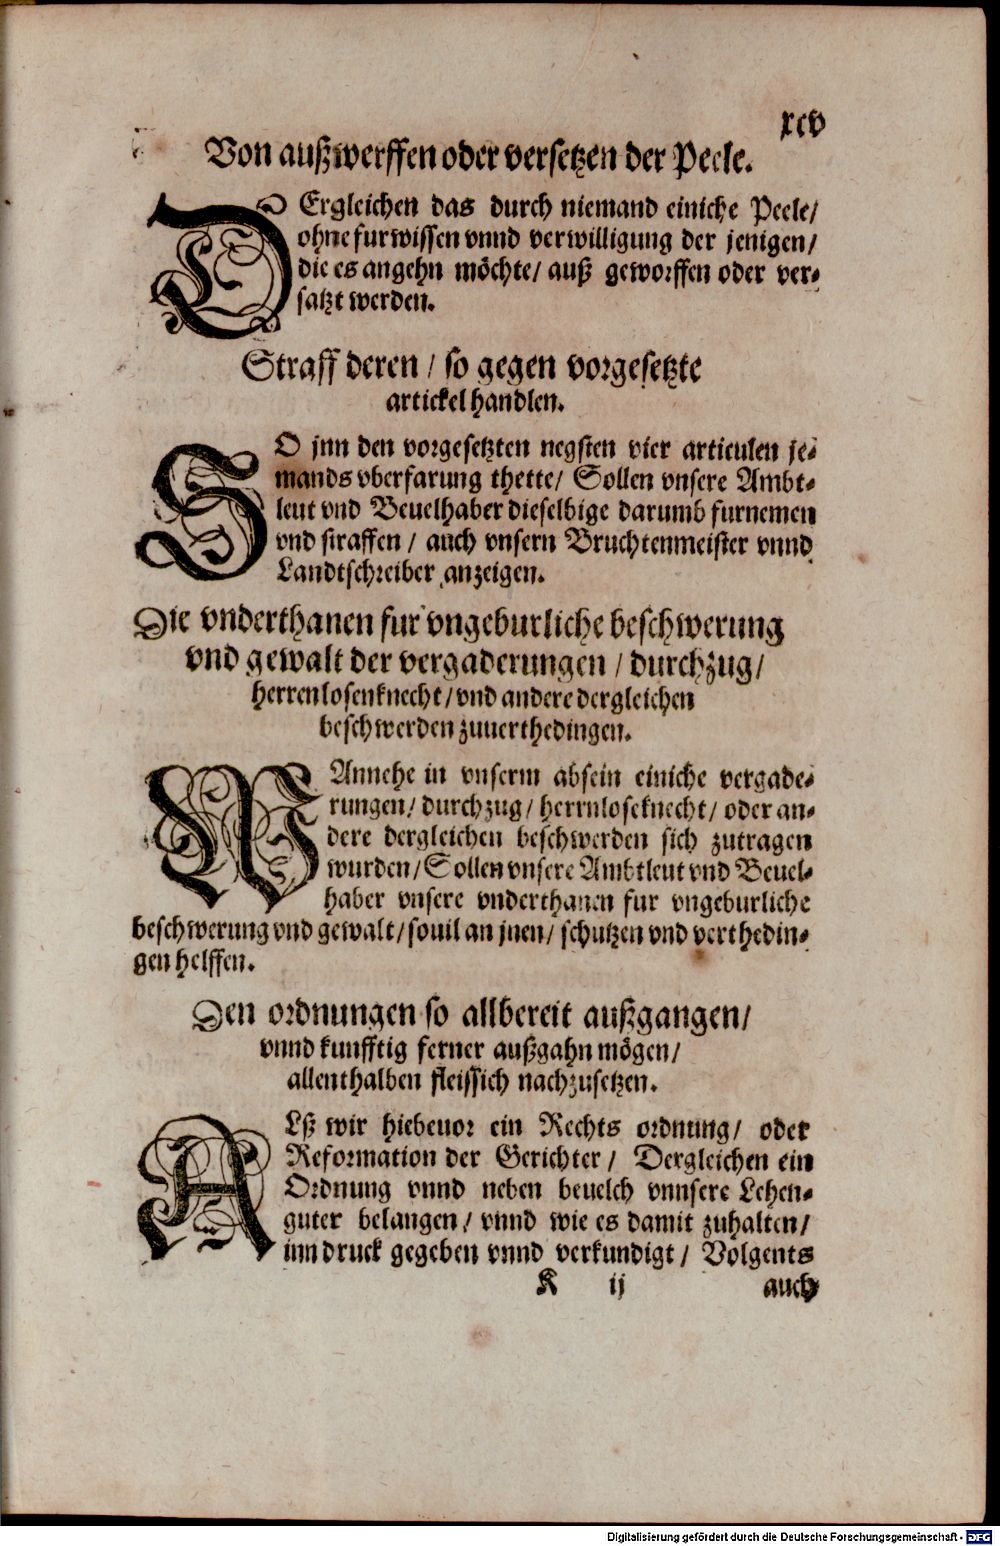 xcv
Von außwerffen oder versetzen der Peele.
DErgleichen das durch niemand einiche Peele/
ohne furwissen vnnd verwilligung der jenigen/
die es angehn möchte/ auß geworffen oder ver-
satzt werden.
Straff deren / so gegen vorgesetzte
artickel handlen.
SO jnn den vorgesetzten negsten vier articulen je-
mands vberfarung thette/ Sollen vnsere Ambt-
leut vnd Beuelhaber dieselbige darumb furnemen
vnd straffen / auch vnsern Bruchtenmeister vnnd
Landtschreiber anzeigen.
Die vnderthanen fur vngeburliche beschwerung
vnd gewalt der vergaderungen / durchzug/
herrenlosenknecht/ vnd andere dergleichen
beschwerden zuuerthedingen.
WAnnehe in vnserm absein einiche vergade-
rungen/ durchzug/ herrnloseknecht/ oder an-
dere dergleichen beschwerden sich zutragen
wurden/ Sollen vnsere Ambtleut vnd Beuel-
haber vnsere vnderthanen fur vngeburliche
beschwerung vnd gewalt/ souil an jnen/ schutzen vnd verthedin-
gen helffen.
Den ordnungen so allbereit außgangen/
vnnd kunfftig ferner außgahn mögen/
allenthalben fleissich nachzusetzen.
ALß wir hiebeuor ein Rechts ordnung/ oder
Reformation der Gerichter/ Dergleichen ein
Ordnung vnnd neben beuelch vnnsere Lehen-
guter belangen/ vnnd wie es damit zuhalten/
inn druck gegeben vnnd verkundigt/ Volgents
K ij auch
Digitalisierung gefördert durch die Deutsche Forschungsgemeinschaft - DFG